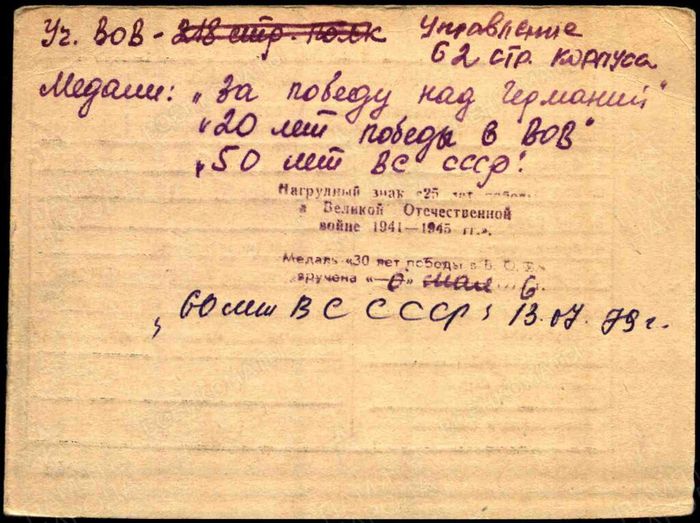 Уч. ВОВ - 318 стр. полк Управление
62 стр. корпуса
Медали: „За победу над Германий"
„20 лет победы в ВОВ"
„50 лет ВС СССР".
Нагрудный знак «25 лет победы
в Великой Отечественной
войне 1941—1945 гг.».
Медаль «30 лет победы в В. О. В»
вручена «—6» мая 6
„60 лет ВС СССР" 13.07.79 г.